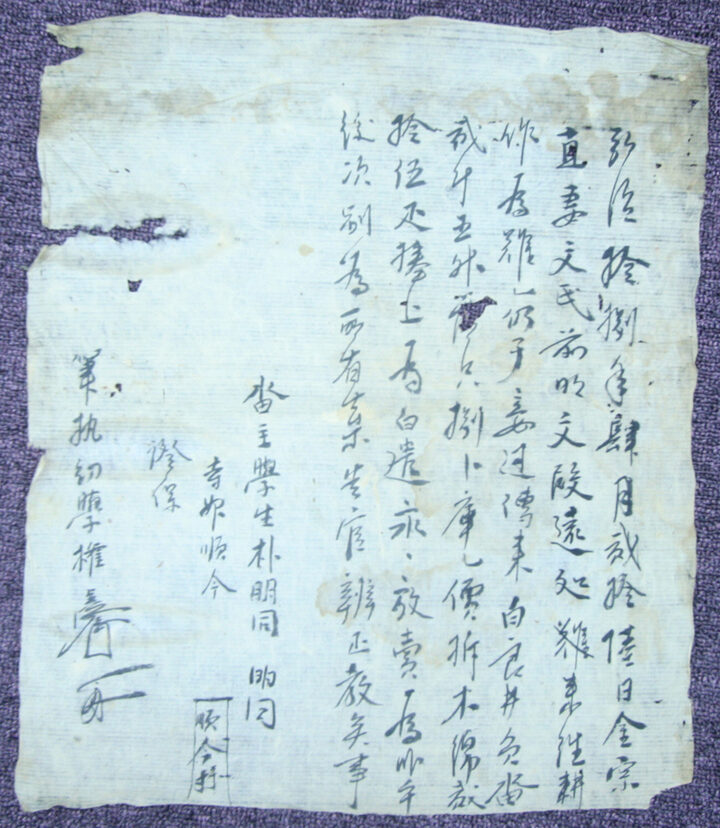 弘治拾捌年肆月貳拾陸日金宗
直妻文氏前明文段遠処難来往耕
作爲難乙仍于妾邊傳来白良井員畓
貳斗五升落只捌卜庫乙價折木綿貳
拾伍疋捧上爲白遣永〻放賣爲
後次別爲所有去等告官辨正教矣事
畓主學生朴明同 明同
寺婢順今
順今
證保
筆執幼學權